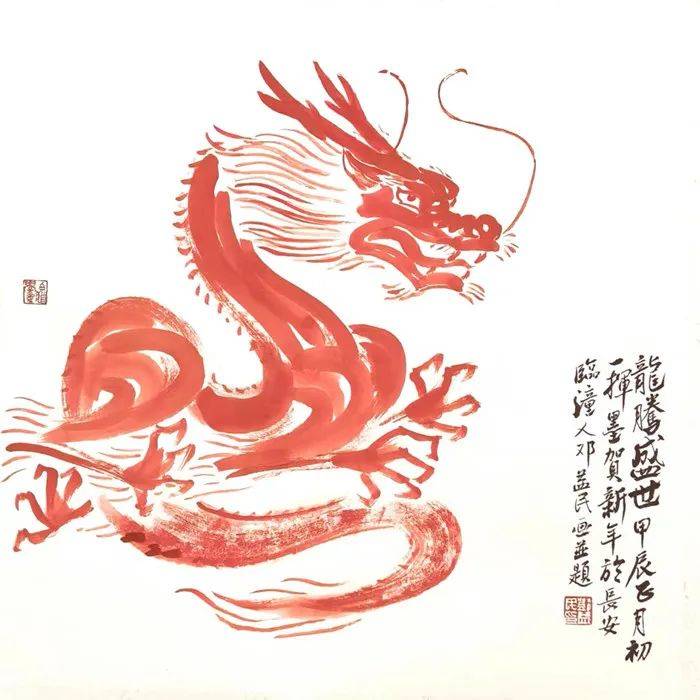 龍騰盛世甲辰正月初
一揮墨賀新年於長安
臨潼人邓益民画並題